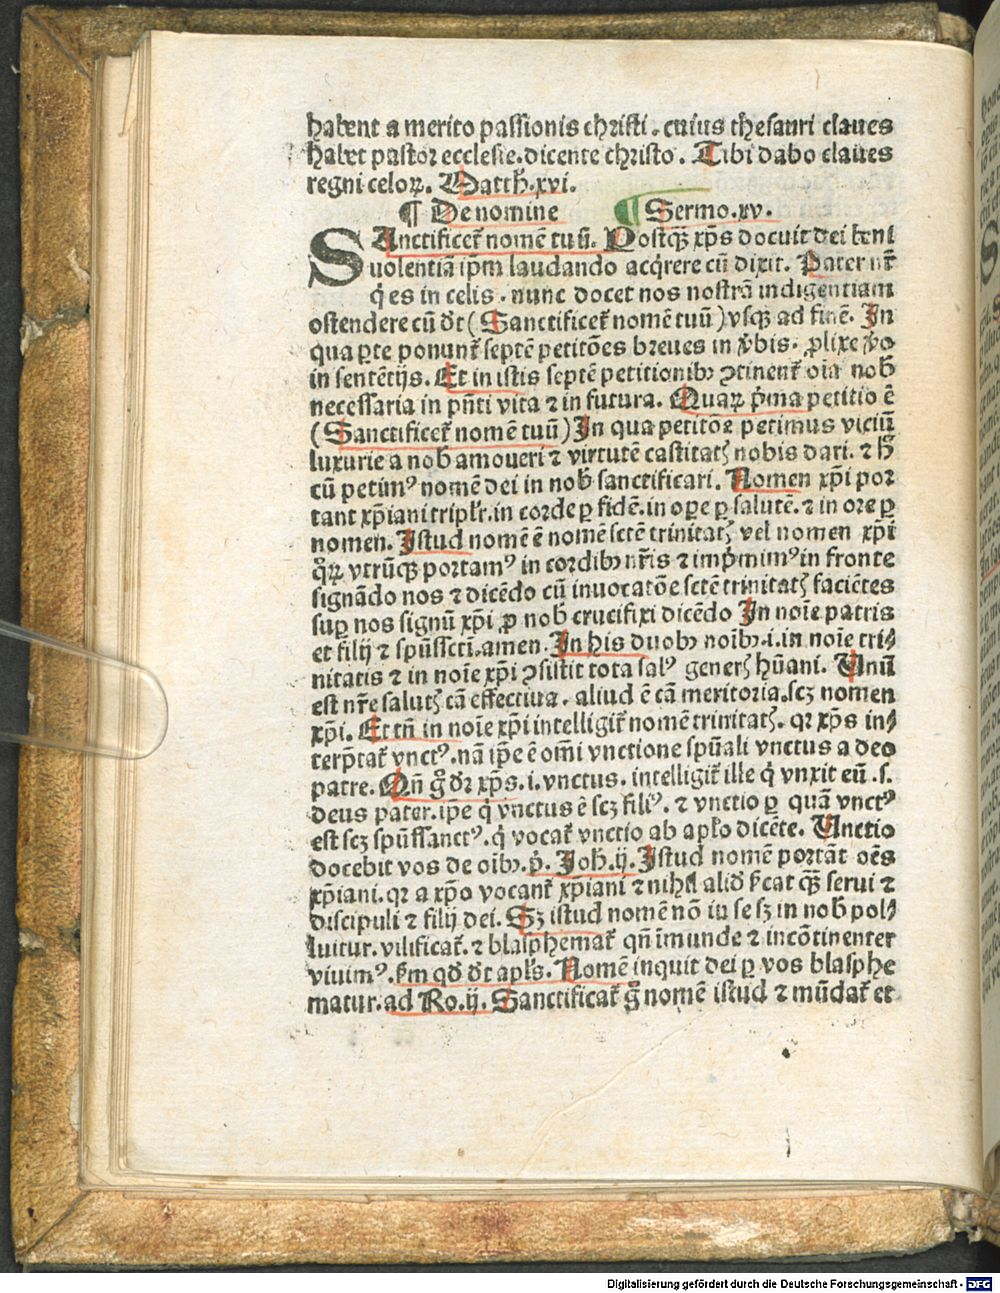 habent a merito passionis christi. cuius thesauri claues
habet pastor ecclesie. dicente christo. Tibi dabo claues
regni celoꝝ. Matth̄.xvi.
¶ De nomine ¶ Sermo.xv.
SAnctificet᷑ nomē tuū. Postqȝ xp̄s docuit dei beni
uolentiā ip̄m laudando acq̇rere cū dixit. Pater nr̄
q̇ es in celis. nunc docet nos nostrā indigentiam
ostendere cū dt̄ (Sanctificet᷑ nomē tuū) vsqȝ ad finē. In
qua ꝑte ponunt᷑ septē petitōes breues in v̄bis. ꝓlixe v̄o
in sentētijs. Et in istis septē petitionibꝫ ꝯtinent᷑ oīa nob̄
necessaria in pn̄ti vita ⁊ in futura. Quaꝝ p̄ma petitio ē
(Sanctificet᷑ nomē tuū) In qua petitōe petimus viciū
luxurie a nob̄ amoueri ⁊ virtutē castitatꝭ nobis dari. ⁊ h̄
cū petimꝰ nomē dei in nob̄ sanctificari. Nomen xp̄i por
tant xp̄iani triplr̄. in corde ꝑ fidē. in oꝑe ꝑ salutē. ⁊ in ore ꝑ
nomen. Istud nomē ē nomē sctē trinitatꝭ vel nomen xp̄i
qr̄ꝝ vtrūqȝ portamꝰ in cordibꝫ nr̄is ⁊ imp̄mimꝰ in fronte
signādo nos ⁊ dicēdo cū inuocatōe sctē trinitatꝭ faciētes
suꝑ nos signū xp̄i ꝓ nob̄ crucifixi dicēdo In noīe patris
et filij ⁊ sp̄ussctī. amen. In his duobꝫ noībꝫ .i. in noīe tri⸗
nitatis ⁊ in noīe xp̄i ꝯsistit tota salꝰ generꝭ hūani. Vnū
est nr̄e salutꝭ cā effectiua. aliud ē cā meritoria. scꝫ nomen
xp̄i. Et tn̄ in noīe xp̄i intelligit᷑ nomē trinitatꝭ. qꝛ xp̄s in⸗
terp̄tat᷑ vnctꝰ. nā ip̄e ē om̄i vnctione spūali vnctus a deo
patre. Qn̄ g̊ dr̄ xp̄s .i. vnctus. intelligit᷑ ille q̇ vnxit eū .s.
deus pater. ip̄e q̇ vnctus ē scꝫ filiꝰ. ⁊ vnctio ꝑ quā vnctꝰ
est scꝫ sp̄ussanctꝰ. q̇ vocat᷑ vnctio ab apl̄o dicēte. Vnctio
docebit vos de oībꝫ. p̄. Joh̄.ij. Istud nomē portāt oēs
xp̄iani. qꝛ a xp̄o vocant᷑ xp̄iani ⁊ nihil aliđ s̄cat qȝ serui ⁊
discipuli ⁊ filij dei. Sꝫ istud nomē nō in se sꝫ in nob̄ pol⸗
luitur. vilificat᷑. ⁊ blasphemat᷑ qn̄ īmunde ⁊ incōtinenter
viuimꝰ. s̄m qđ dt̄ apl̄s. Nomē inquit dei ꝑ vos blasphe
matur. ad Ro.ij. Sanctificat᷑ g̊ nomē istud ⁊ mūdat᷑ et
Digitalisierung gefördert durch die Deutsche Forschungsgemeinschaft - DFG